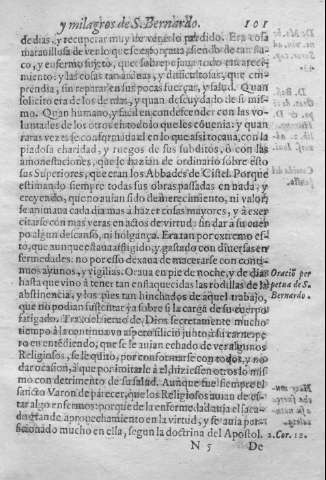 y milagros de S. Bernardo. 101
de dias, y recuperar muy de veras lo perdido. Era cosa
marauillosa de ver lo que se esforçaua, siendo de tan flaco
, y enfermo sujeto, que sobrepujaua todo encarecimiento
: y las cosas tan arduas, y dificultosas, que emprendia
, sin reparar en sus pocas fuerças, y salud. Quan
solicito era de los demas, y quan descuydado de si mismo
. Quan humano, y facil en condescender con las voluntades
de los otros en todo lo que les conuenia: y quan
raras vezes se conformaua en lo que a si tocaua, con la
piadosa charidad, y ruegos de sus subditos, ò con las
amonestaciones, que le hazian de ordinario sobre esto
sus Superiores, que eran los Abbades de Cistel. Porque
estimando siempre todas sus obras passadas en nada, y
creyendo, que no auian sido de merecimiento, ni valor;
se animaua cada dia mas à hazer cosas mayores, y à exercitarse
con mas veras en actos de virtud, sin dar à su cuerpo
algun descanso, ni holgança. Era tan por extremo esto
, que aunque estaua afligido, y gastado con diuersas enfermedades
: no por esso dexaua de macerarse con continuos
ayunos, y vigilias. Oraua en pie de noche, y de dia
Oració perpetua de S. Bernardo.
hasta que vino à tener tan enflaquecidas las rodillas de la
abstinencia, y los pies tan hinchados de aquel trabajo,
que no podian sustentar ya sobre si la carga de su cuerpo
fatigado. Traxo el sieruo de Dios secretamente mucho
tiempo à la continua vn aspero silicio junto à su carne: pero
en entēdiendo, que se le auian echado de ver algunos
Religiosos, se le quitò, por conformarse con todos, y no
dar ocasion, à que por imitarle à el, hiziessen otros lo mismo
con detrimento de su salud. Aunque fue siempre el
sancto Varon de parecer, que los Religiosos auian de estar
algo enfermos: porque de la enfermedad auia el sacudo
grande aprouechamiento en la virtud, y se auia perficionado
mucho en ella, segun la doctrina del Apostol.
2. Cor. 12.
N 5 De